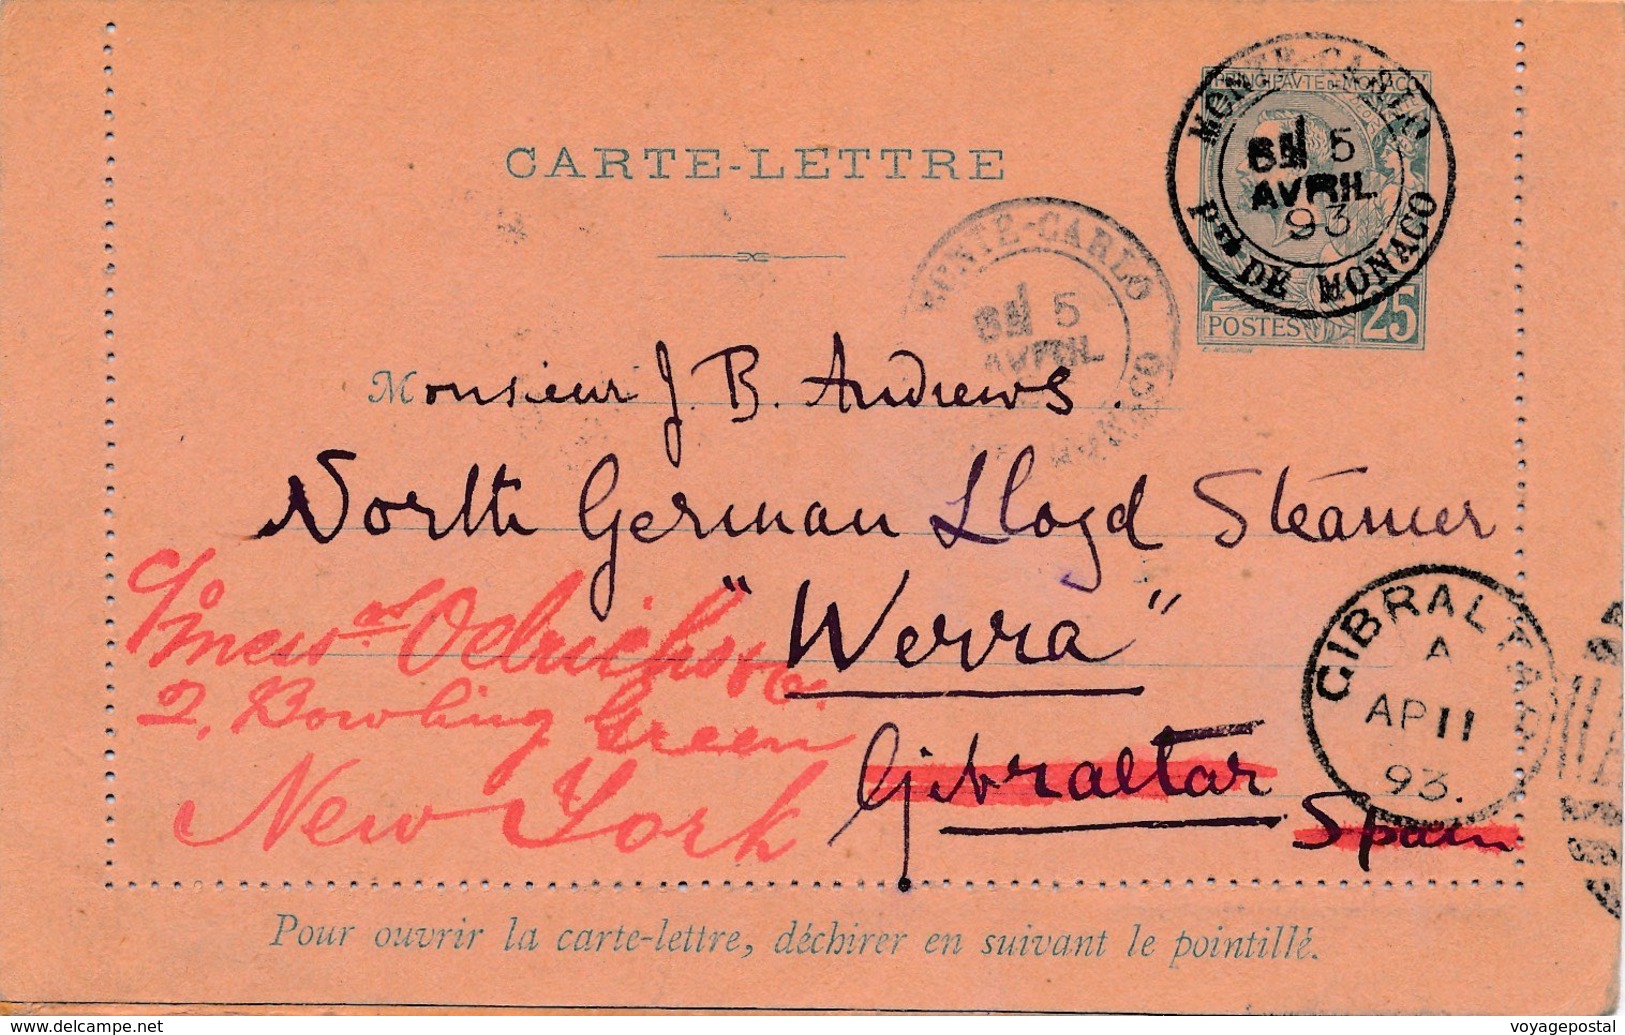 PRINCIPAUTE DE MONACO
MONTE-CARLO
5
AVRIL
93
Pté DE MONACO
POSTES 25
CARTE-LETTRE
MONTE-CARLO
5
AVRIL
MONACO
Monsieur J. B. Andrews.
North German Lloyd Steamer
"Werra"
Gibraltar
Spain
c/o Messrs Oelrichs & Co.
2. Bowling Green
New York
GIBRALTAR
A
AP 11
93.
Pour ouvrir la carte-lettre, déchirer en suivant le pointillé.
www.delcampe.net
voyagepostal